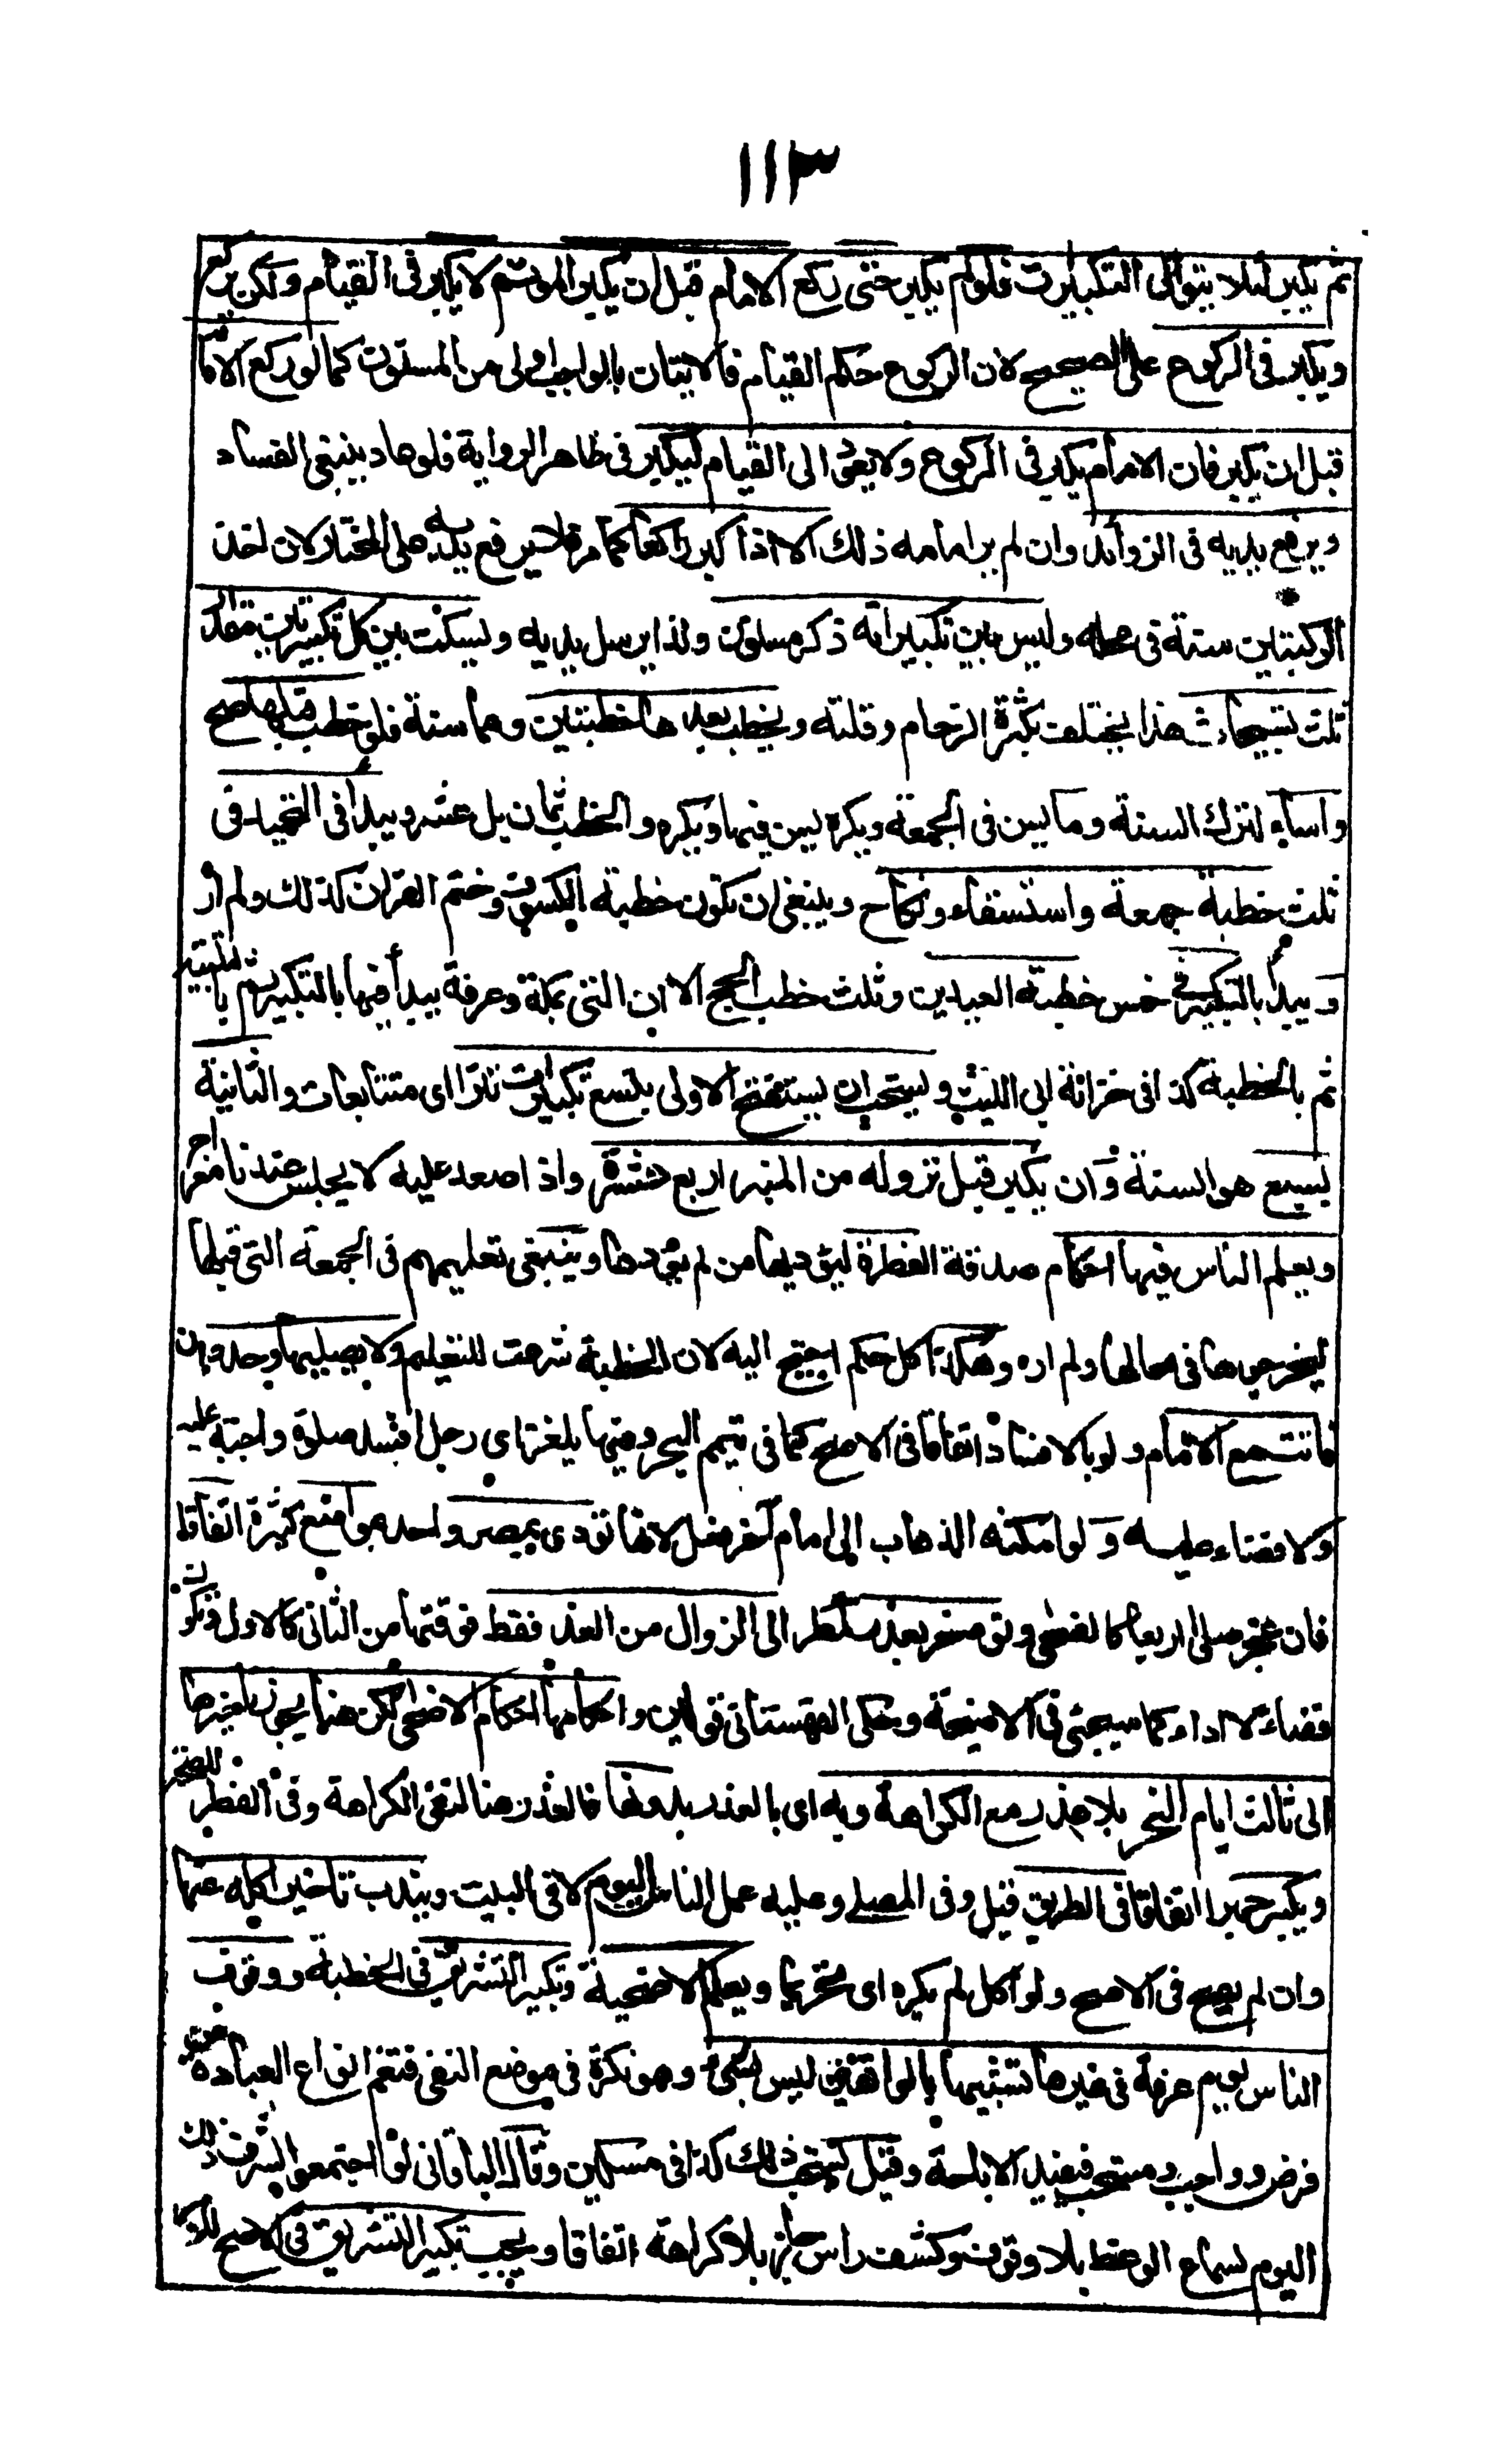 ١١٣
ثم يكبر لئلا يتوالى التكبيرات فلو لم يكبر حتى ركع الامام قبل ان يكبر الموتم لا يكبر فى القيام ولكن يركع
ويكبر فى الركوع على الصحيح لان الركوع حكم القيام فالاتيان بالواجب اولى من المسنون كما لو ركع الامام
قبل ان يكبر فان الامام يكبر فى الركوع ولا يعود الى القيام ليكبر فى ظاهر الرواية فلو عاد ينبغى الفساد
ويرفع يديه فى الزوائد وان لم ير امامه ذلك الا اذا كبر راكعا كما مر فلا يرفع يديه على المختار لان اخذ
الركبتين سنة فى محله وليس بين تكبيراته ذكر مسنون ولذا يرسل يديه ويسكت بين كل تكبيرتين مقدار
ثلث تسبيحات هذا يختلف بكثرة الزحام وقلته ويخطب بعدها خطبتين وهما سنة فلو خطب قبلها صح
واساء لترك السنة وما يسن فى الجمعة ويكره يسن فيها ويكره والخطب ثمان بل عشر ويبدأ فى التحميد فى
ثلث خطبة جمعة واستسقاء ونكاح وينبغى ان تكون خطبة الكسوف وختم القران كذلك ولم ار
ويبدأ بالتكبير فى خمس خطبة العيدين وثلث خطب الحج الا ان التى بمكة وعرفة يبدأ فيها بالتكبير ثم بالتلبية
ثم بالخطبة كذا فى خزانة ابى الليث ويستحب ان يستفتح الاولى بتسع تكبيرات تترا اى متتابعات والثانية
بسبع هو السنة وان يكبر قبل نزوله من المنبر اربع عشرة واذا صعد عليه لا يجلس عندنا معراج
ويعلم الناس فيها احكام صدقة الفطرة ليؤديها من لم يؤدها وينبغى تعليمهم فى الجمعة التى قبلها
ليخرجوها فى محالها ولم اره وهكذا كل حكم احتيج اليه لان الخطبة شرعت للتعليم ولا يصليها وحده ان
فاتت مع الامام ولو بالافساد اتفاقا فى الاصح كما فى تيمم البحر وفيها يلغز اى رجل افسد صلوة واجبة عليه
ولا قضاء عليه ولو امكنه الذهاب الى امام آخر فعل لانها تؤدى بمصر واحد بمواضع كثيرة اتفاقا
فان عجز صلى اربعا كالضحى وتؤخر بعذر كمطر الى الزوال من الغد فقط فوقتها من الثانى كالاول وتكون
قضاء لا اداء كما سيجئ فى الاضحية وحكى القهستانى قولين واحكامها احكام الاضحى لكن هنا يجوز تاخيرها
الى ثالث ايام النحر بلا عذر مع الكراهة وبه اى بالعذر بدونها فالعذر هنا لنفى الكراهة وفى الفطر للصحة
ويكبر جهرا اتفاقا فى الطريق قيل وفى المصلى وعليه عمل الناس اليوم لا فى البيت ويندب تاخير اكله عنها
وان لم يضح فى الاصح ولو اكل لم يكره اى تحريما ويعلم الاضحية وتكبير التشريق فى الخطبة ووقوف
الناس يوم عرفة فى غيرها تشبيها بالواقفين ليس بشئ وهو نكرة فى موضع النفى فتعم انواع العبادة من
فرض وواجب ومستحب فيفيد الاباحة وقيل يستحب ذلك كذا فى مسكين وقال الباقانى لو اجتمعوا لشرف ذلك
اليوم لسماع الوعظ بلا وقوف وكشف راس جاز بلا كراهة اتفاقا ويجب تكبير التشريق فى الاصح للامر